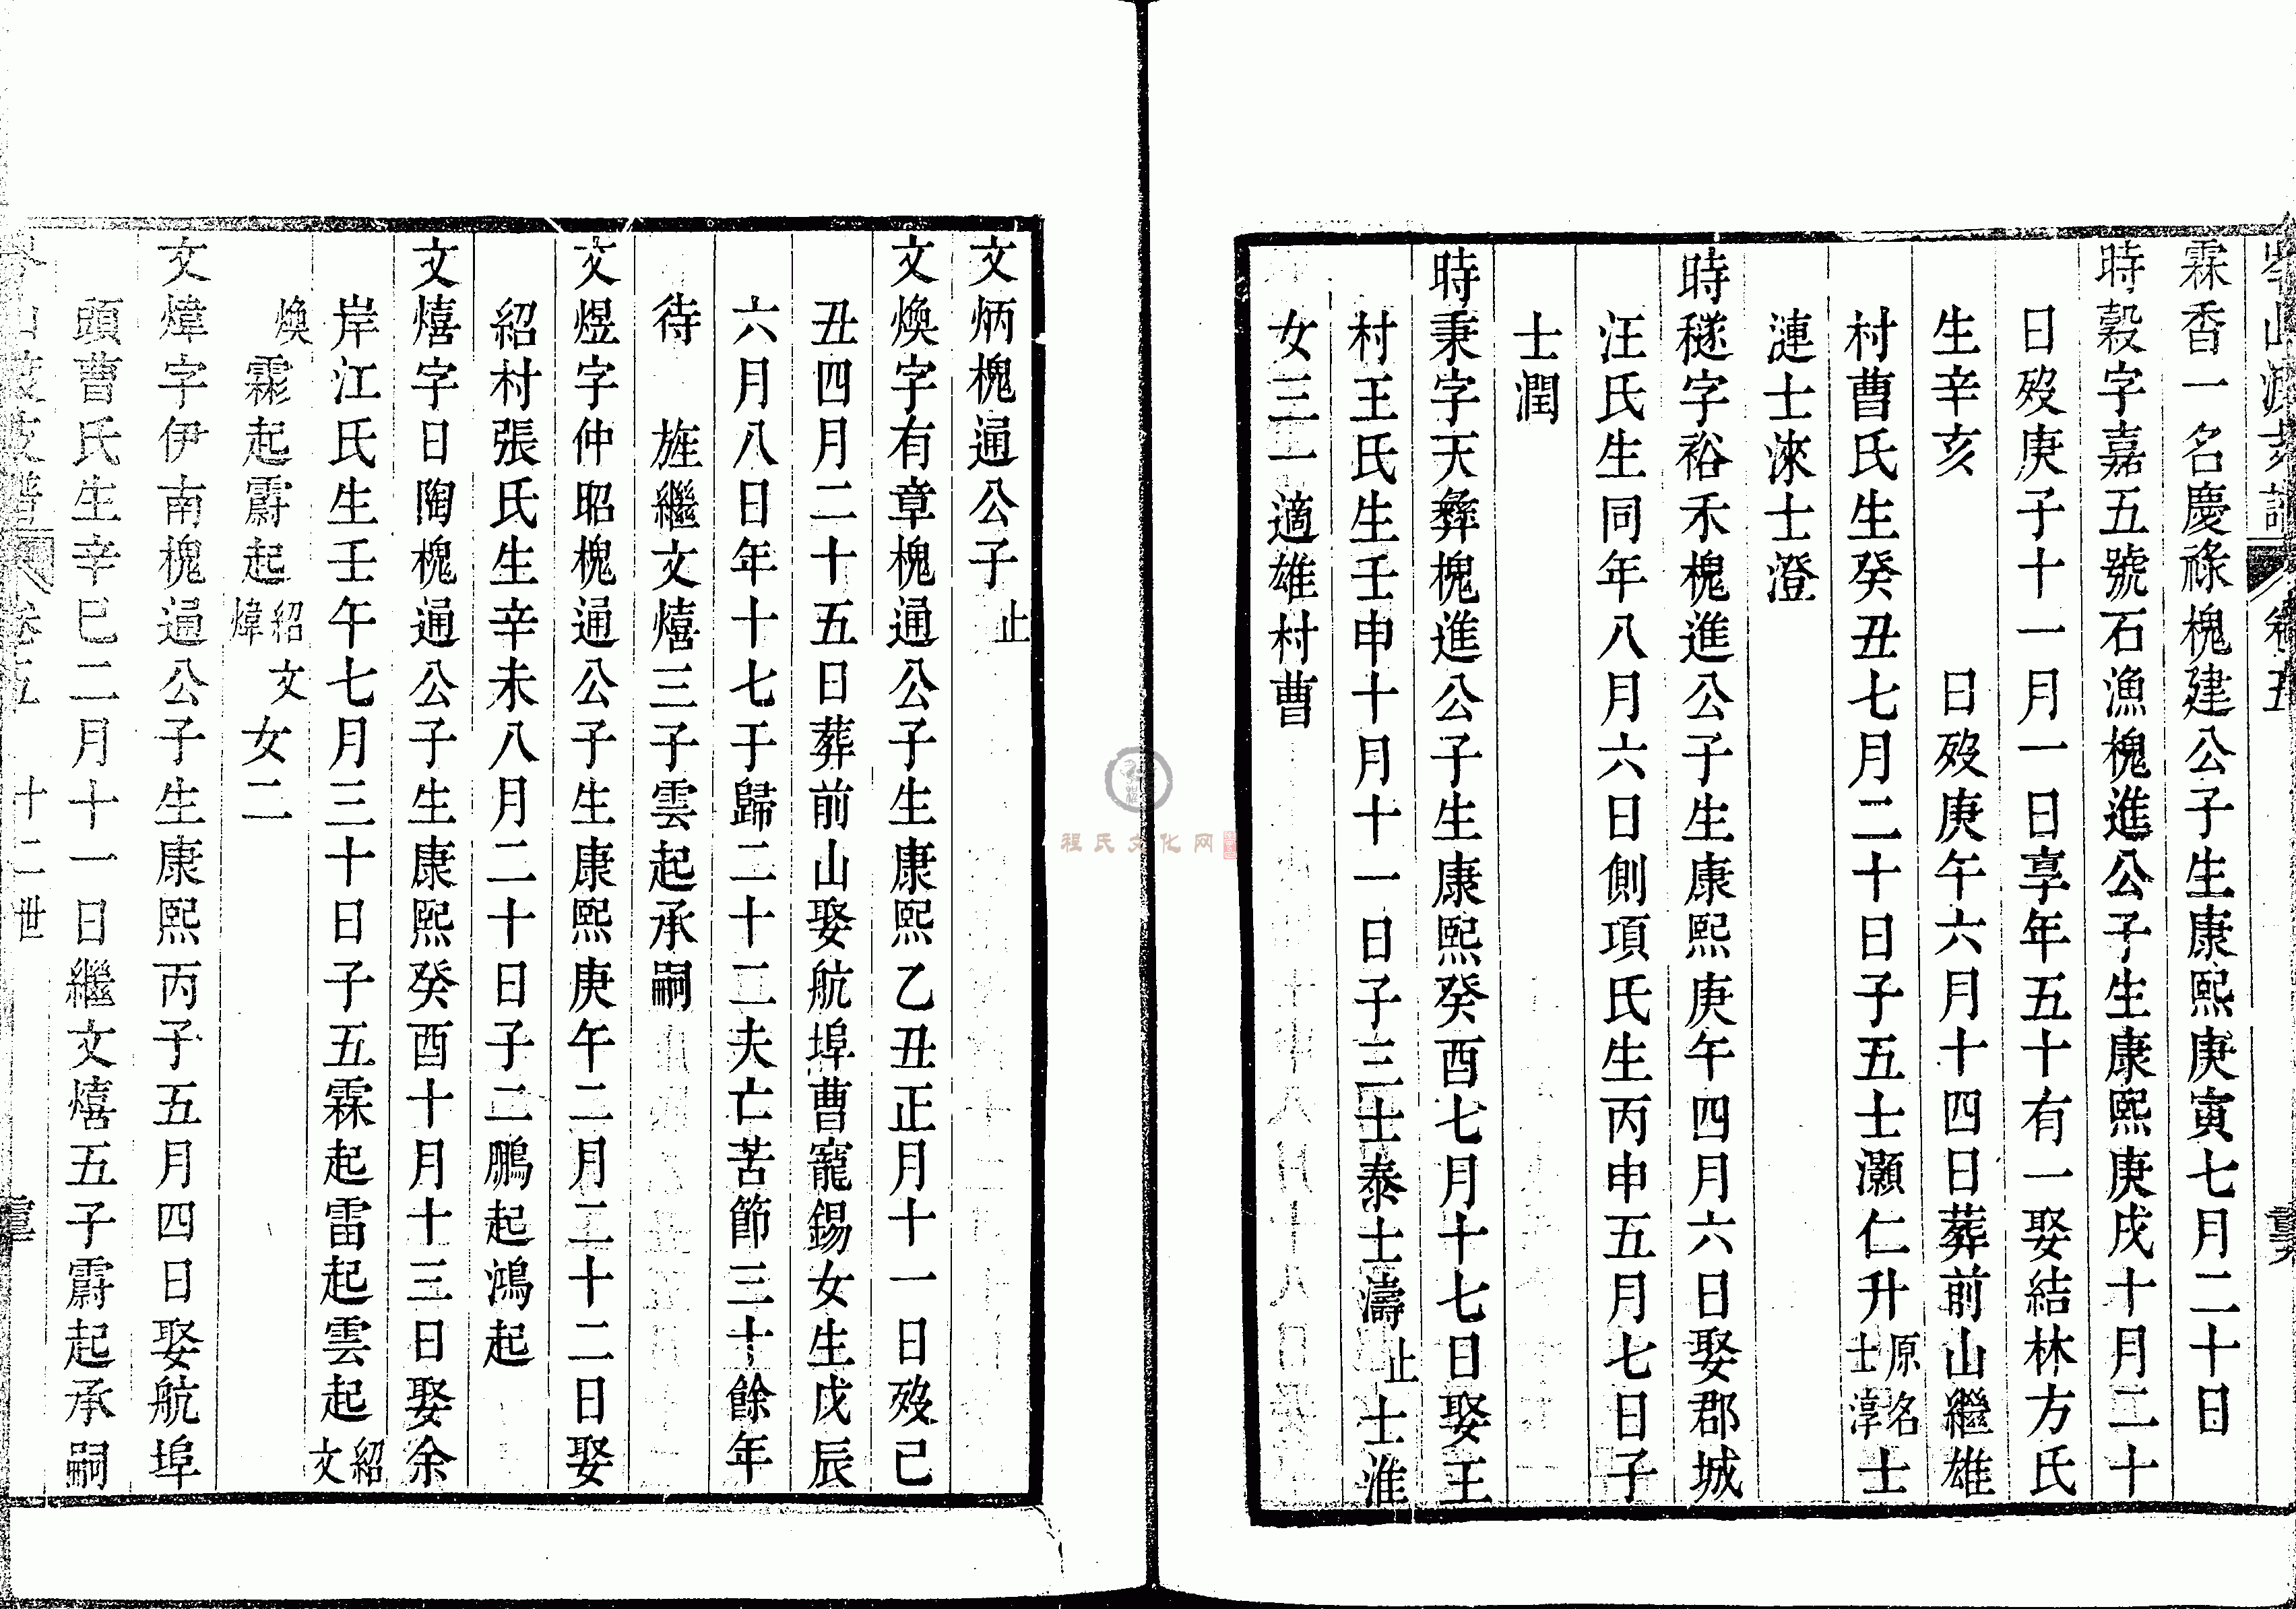 卷五
霖香一名慶祿槐建公子生康熙庚寅七月二十日
時穀字嘉五號石漁槐進公子生康熙庚戌十月二十
日歿庚子十一月一日享年五十有一娶結林方氏
生辛亥 日歿庚午六月十四日葬前山繼雄
村曹氏生癸丑七月二十日子五士灝仁升原名士淳士
漣士淶士澄
時穟字裕禾槐進公子生康熙庚午四月六日娶郡城
汪氏生同年八月六日側項氏生丙申五月七日子
士潤
時秉字天彝槐進公子生康熙癸酉七月十七日娶王
村王氏生壬申十月十一日子三士泰士濤止士淮
女三一適雄村曹
文炳槐通公子止
文煥字有章槐通公子生康熙乙丑正月十一日歿己
丑四月二十五日葬前山娶航埠曹寵錫女生戊辰
六月八日年十七于歸二十二夫亡苦節三十餘年
待旌繼文熺三子雲起承嗣
文煜字仲昭槐通公子生康熙庚午二月二十二日娶
紹村張氏生辛未八月二十日子二鵬起鴻起
文熺字日陶槐通公子生康熙癸酉十月十三日娶余
岸江氏生壬午七月三十日子五霖起雷起雲起紹文
煥霦起霨起紹文煒女二
文煒字伊南槐通公子生康熙丙子五月四日娶航埠
頭曹氏生辛巳二月十一日繼文熺五子霨起承嗣
山 支譜 卷五 十二世
程氏文化网